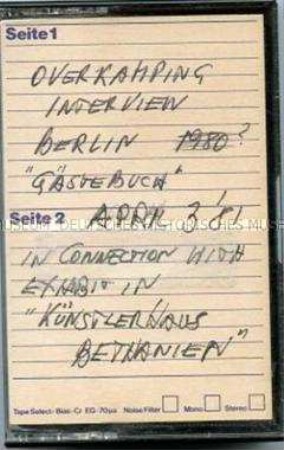 Seite 1
OVERKAMPING
INTERVIEW
BERLIN 1980?
"GÄSTEBUCH"
Seite 2 APRIL 3 '81
DEUTSCHES HISTORISCHES MUSEUM
IN CONNECTION WITH
EXHABIT IN
"KÜNSTLERHAUS
BETHANIEN"
Tape Select - Bias-Cr EQ-70µs Noise Filter Mono Stereo